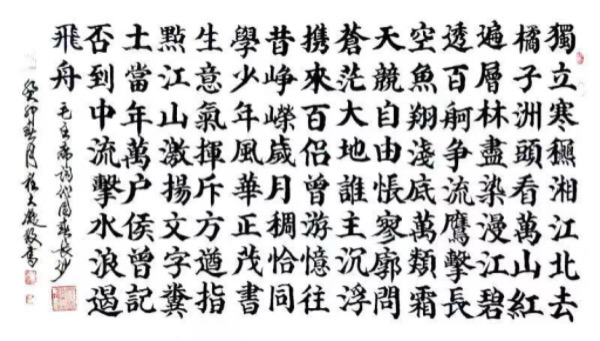 獨立寒穐湘江北去
橘子洲頭看萬山紅
遍層林盡染漫江碧
透百舸争流鷹擊長
空魚翔淺底萬類霜
天競自由悵寥廓問
蒼茫大地誰主沉浮
携來百侣曾游憶往
昔崢嶸歲月稠恰同
學少年風華正茂書
生意氣揮斥方遒指
點江山激揚文字糞
土當年萬户侯曾記
否到中流擊水浪遏
飛舟
毛主席詞沁園春長沙
癸卯春月